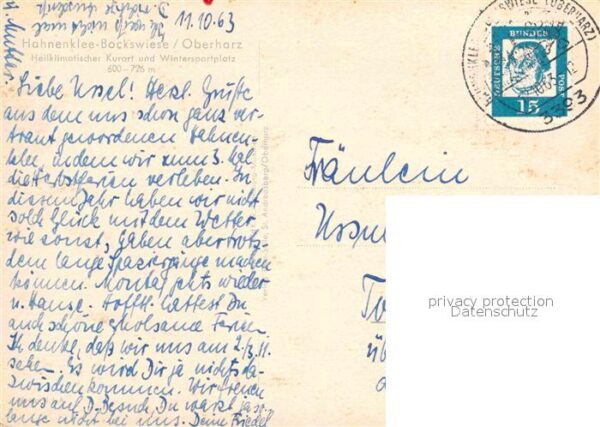 11.10.63
Hahnenklee-Bockswiese / Oberharz
Heilklimatischer Kurort und Wintersportplatz
600 – 726 m
Liebe Ursel! Herzl. Grüße
aus dem uns schon ganz ver-
traut gewordenen Hahnen-
klee, in dem wir zum 3. Mal
die Herbstferien verleben. In
diesem Jahr haben wir nicht
solch Glück mit dem Wetter
wie sonst, haben aber trotz-
dem lange Spaziergänge machen
können. Montag gehts wieder
n. Hause. Hofftl. hattest Du
auch schöne erholsame Ferien.
Ich denke, daß wir uns am 2./3. 11.
sehen. Es wird Dir ja nichts da-
zwischenkommen. Wir freuen
uns auf D. Besuch. Du warst ja so
lange nicht bei uns. Deine Friedel
u. Mutter
Fräulein
DEUTSCHE BUNDESPOST
15
3393
privacy protection
Datenschutz